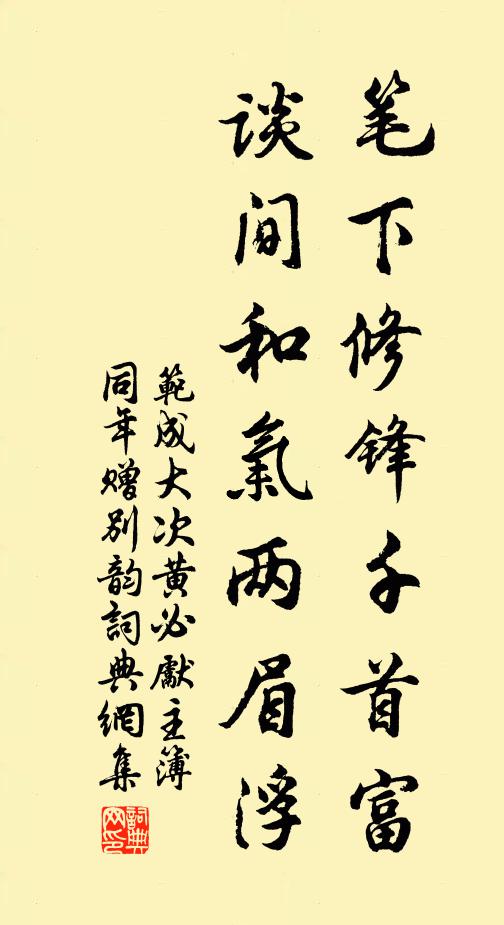 笔下修锋千首富
谈间和氣两眉浮
範成大次黄必獻主簿
同年赠别韵詞典網集
詞典网印